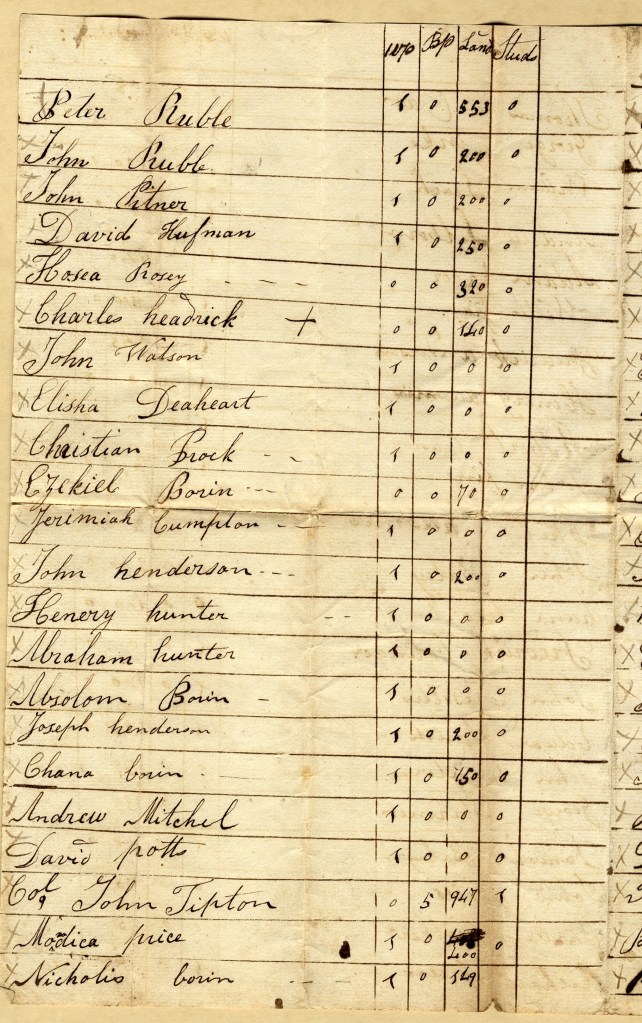 WP BP Land Studs
Peter Ruble 1 0 553 0
John Ruble 1 0 200 0
John Pitner 1 0 200 0
David Hufman 1 0 250 0
Hosea Rosey 0 0 320 0
Charles headrick + 0 0 140 0
John Watson 1 0 0 0
Elisha Deaheart 1 0 0 0
Christian Prock 1 0 0 0
Ezekiel Borin 0 0 70 0
Jerimiah Cumpton 1 0 0 0
John henderson 1 0 200 0
Henery hunter 1 0 0 0
Abraham hunter 1 0 0 0
Absolom Borin 1 0 0 0
Joseph henderson 1 0 200 0
Chana borin 1 0 150 0
Andrew Mitchel 1 0 0 0
David potts 1 0 0 0
Col John Tipton 0 5 947 1
Modica price 1 0 400 0
Nicholis borin 1 0 149